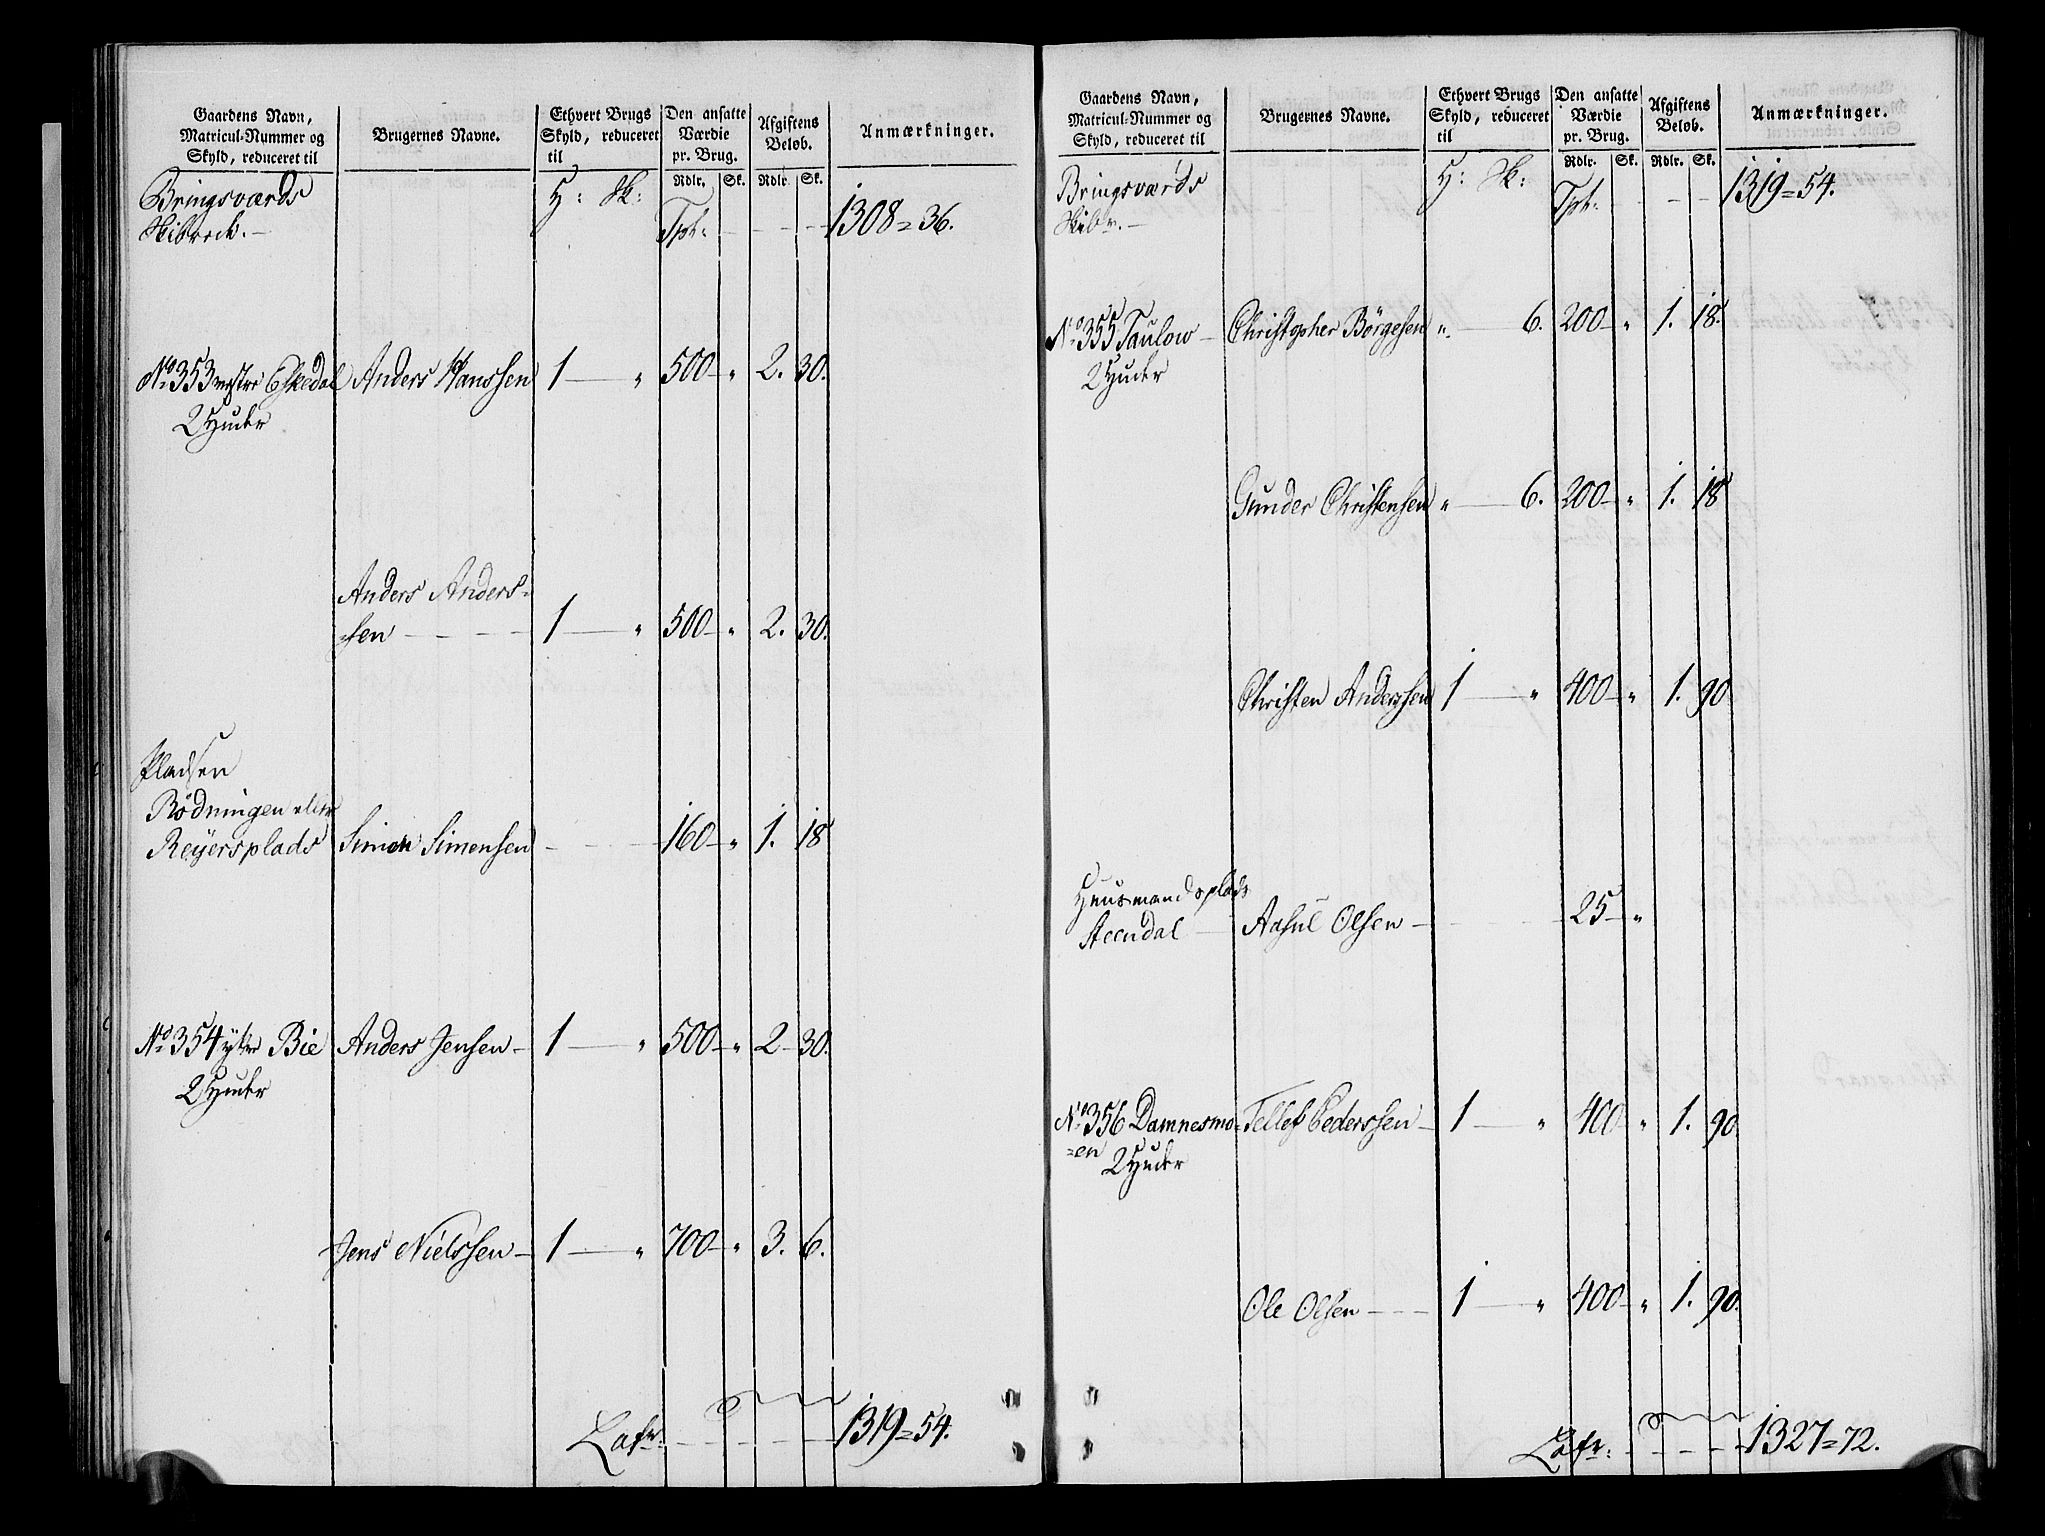 Gaardens Navn, Matricul-Nummer og Skyld, reduceret til | Brugernes Navne. | Ethvert Brugs Skyld, reduceret til | Den ansatte Værdie pr. Brug. | Afgiftens Beløb. | Anmærkninger.
Rdlr. Sk. Rdlr. Sk.
Bringsværds H: Sk:
Skibreds. Tpt: 1308 = 36.
No 353 vestre Eskedal Anders Hanssen 1 — " 500 — " 2. 30.
2 Huder
Anders Anders-
-sen 1 — " 500 — " 2. 30.
Pladsen
Rödningen eller
Reyersplads Simon Simensen 160 — " 1. 18
No 354 ytre Bie Anders Jensen 1 — " 500 — " 2 — 30.
2 Huder
Jens Nielssen 1 — " 700 — " 3. 6.
Lafr: 1319 = 54.
Gaardens Navn, Matricul-Nummer og Skyld, reduceret til | Brugernes Navne. | Ethvert Brugs Skyld, reduceret til | Den ansatte Værdie pr. Brug. | Afgiftens Beløb. | Anmærkninger.
Rdlr. Sk. Rdlr. Sk.
Bringsværds H: Sk: 1319 = 54.
Skibr. Tpt:
No 355 Taulow Christopher Börgesen " — 6. 200 — " 1. 18.
2 Huder
Gunder Christensen " — 6. 200 — " 1. 18
Christen Anderssen 1 — " 400 — " 1. 90
Huusmandsplads
Steendal Aasul Olsen 25 — "
No 356 Damnesmo= Tellef Pederssen 1 — " 400 — " 1. 90.
=en
2 Huder
Ole Olsen 1 — " 400 — " 1. 90.
Lafr: 1327 = 72.